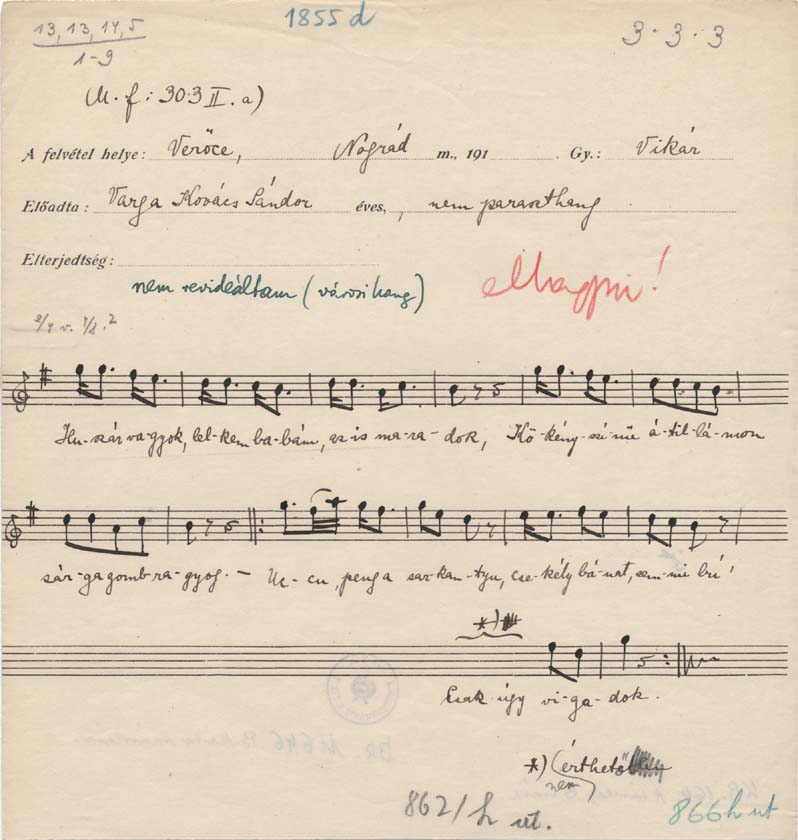 13, 13, 14, 5
1-9
1855 d
3·3·3
M. f: 303 II. a)
A felvétel helye: Verőce, Nográd m., 191 . Gy.: Vikár
Előadta: Varga Kovács Sándor éves, , nem paraszthang
Elterjedtség:
nem revideáltam (városi hang)
elhagyni!
2/4 v. 4/8.?
Hu-szár va-gyok, lel-kem ba-bám, az is ma-ra-dok, Kö-kény-szí-nű á-til-lá-mon
sár-ga gomb ra-gyog. — Uc-cu, peng a sar-kan-tyu, cse-kély bá-nat, sem-mi bú!
*)
Csak úgy vi-ga-dok.
*) (érthető
nem
862/h ut.
866 h ut